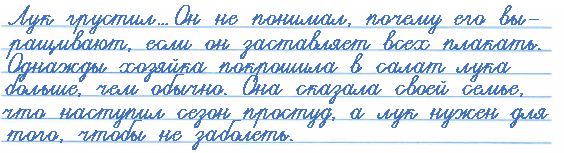 Лук грустил... Он не понимал, почему его вы-
ращивают, если он заставляет всех плакать.
Однажды хозяйка покрошила в салат лука
больше, чем обычно. Она сказала своей семье,
что наступил сезон простуд, а лук нужен для
того, чтобы не заболеть.